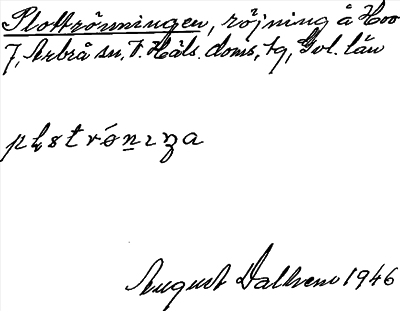 Plottrönningen, röjning å Hov
7, Arbrå sn, V. Häls. doms, tg, Gvl. län
August Dalhem 1946